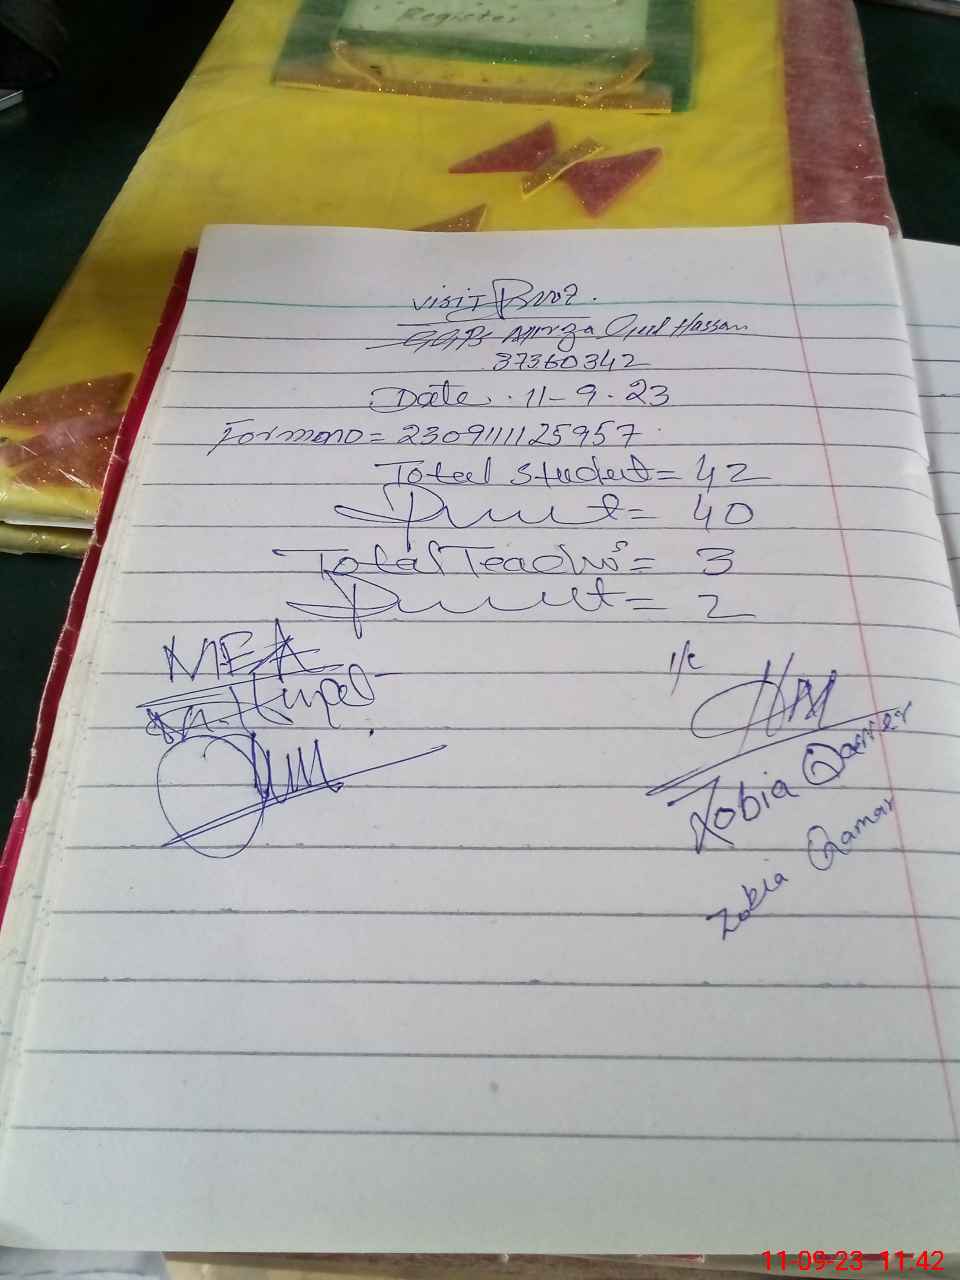 Register
Visit Proof.
GGPS Mirza Gul Hassan
37360342
Date. 11-9-23
Form no = 2309111125957
Total Student = 42
Present = 40
Total Teachers = 3
Present = 2
MEA
I/c
Zobia Qamar
Zobia Qamar
11-09-23 11:42